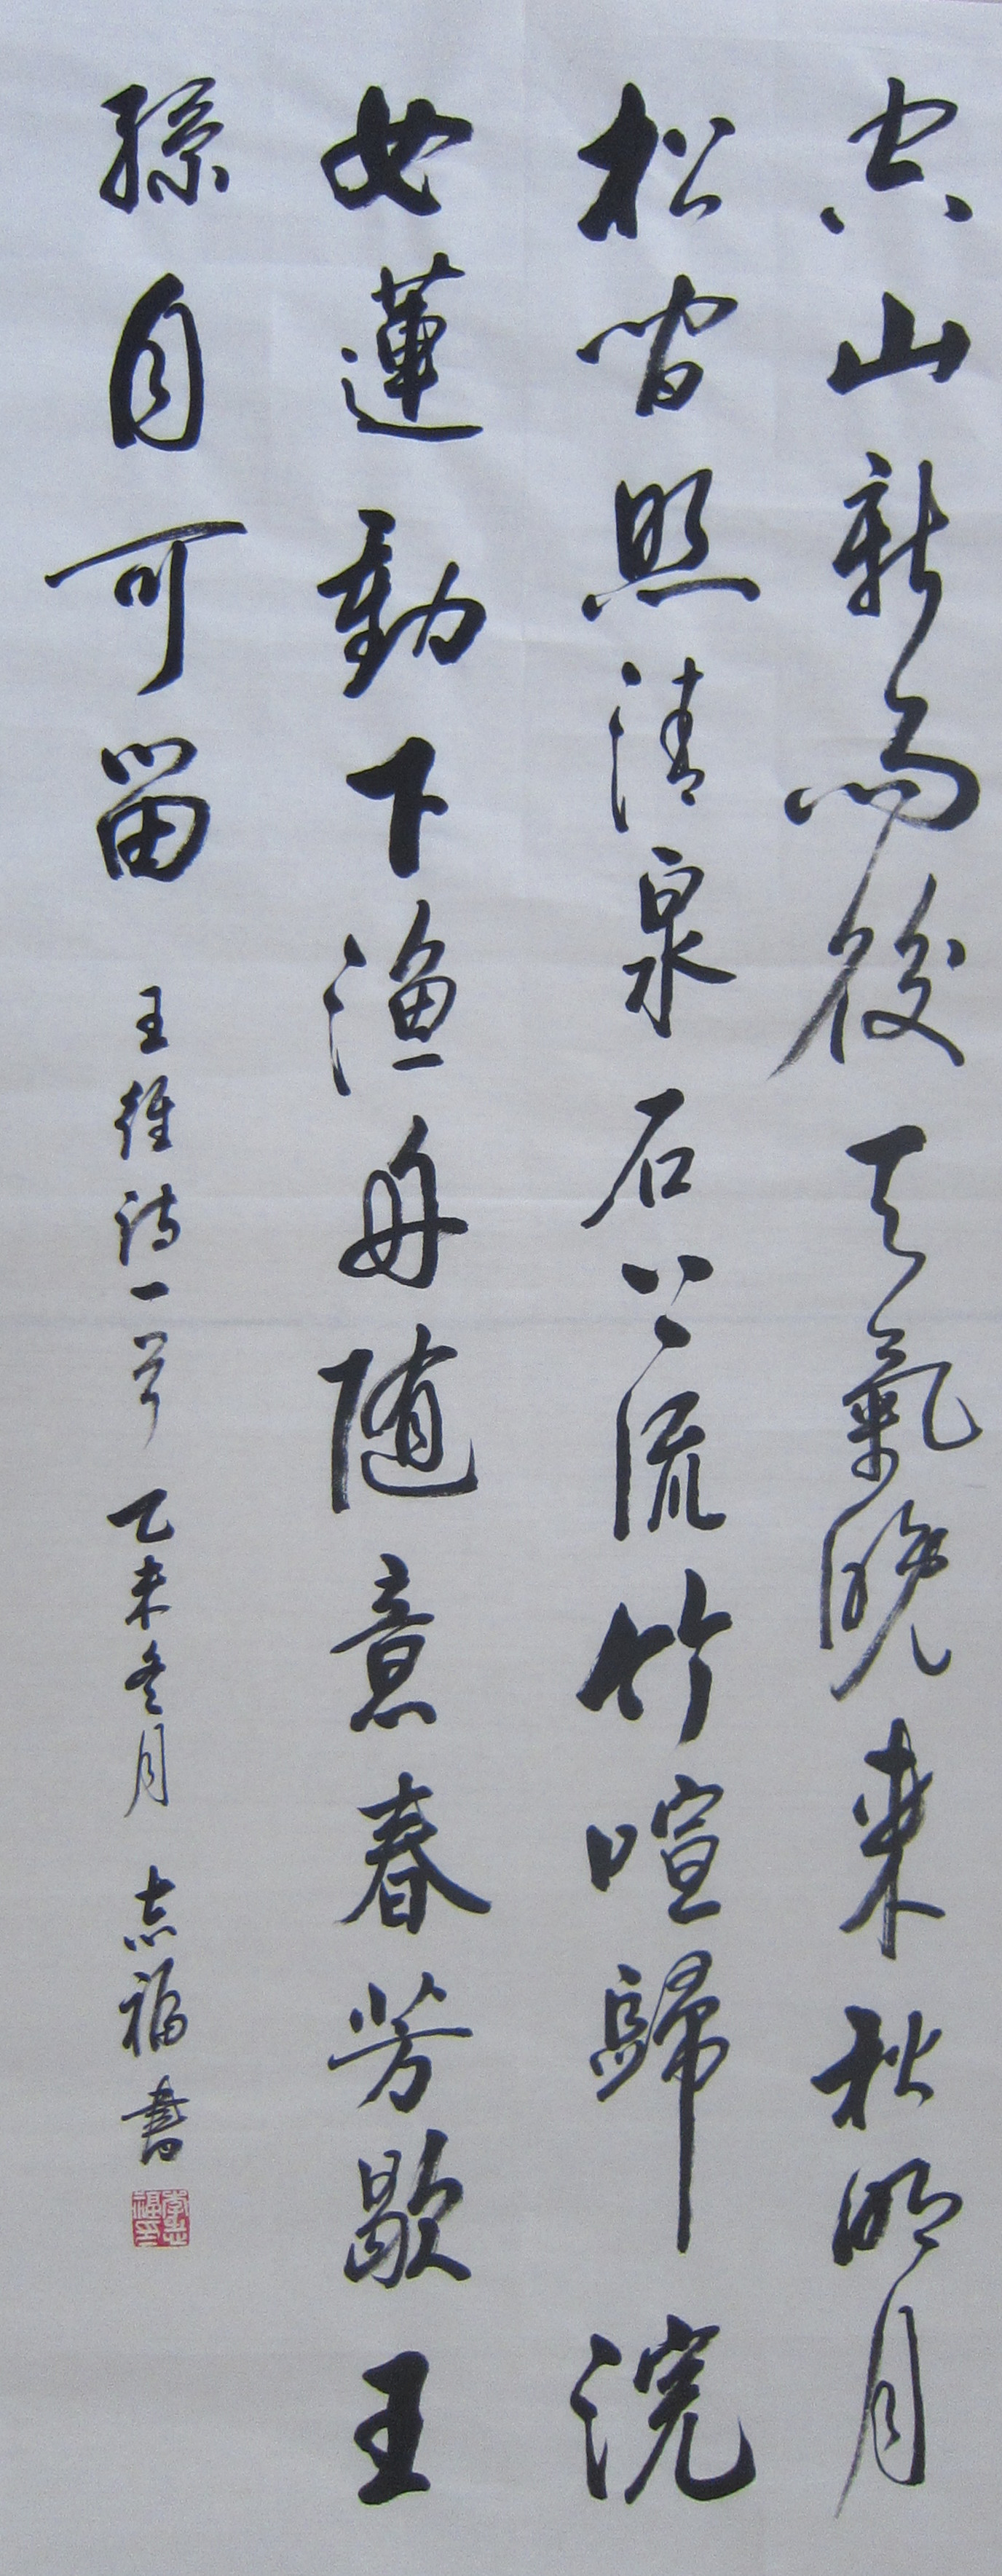 空山新雨後天氣晚来秋明月
松间照清泉石上流竹喧歸浣
女蓮動下渔舟随意春芳歇王
孫自可留
王維诗一首 乙未冬月 志福書
李志福印